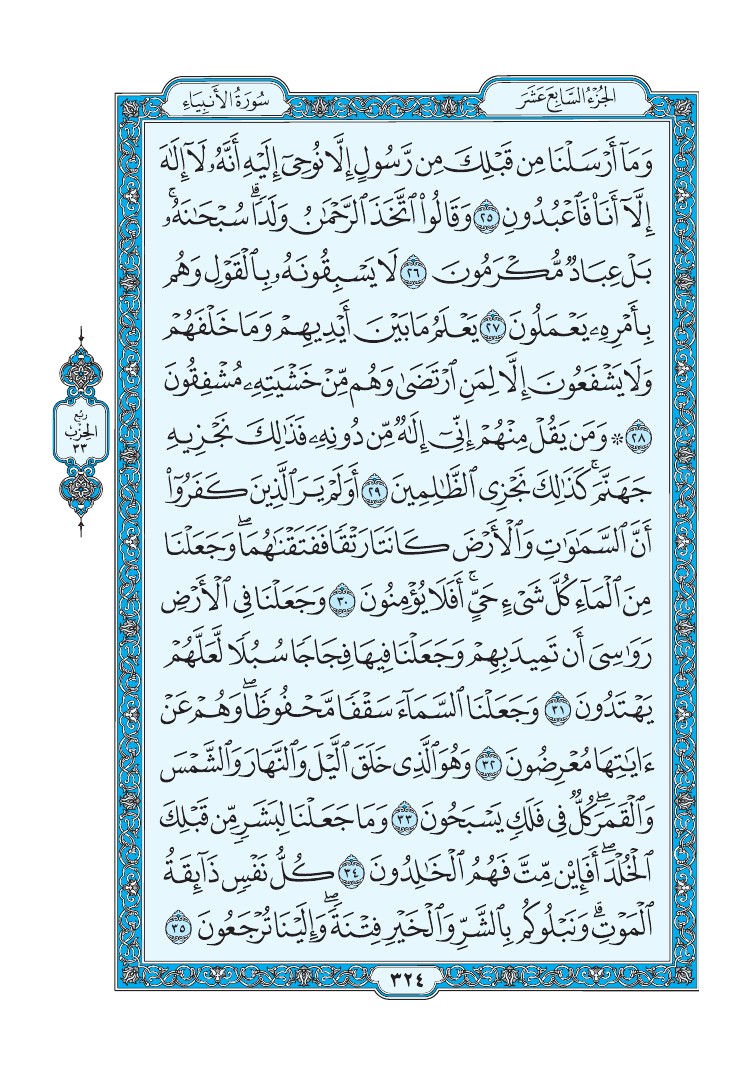 الجُزْءُ السَّابِعَ عَشَرَ
سُورَةُ الأَنبِيَاءِ
وَمَآ أَرْسَلْنَا مِن قَبْلِكَ مِن رَّسُولٍ إِلَّا نُوحِىٓ إِلَيْهِ أَنَّهُۥ لَآ إِلَٰهَ
إِلَّآ أَنَا۠ فَٱعْبُدُونِ ٢٥ وَقَالُوا۟ ٱتَّخَذَ ٱلرَّحْمَٰنُ وَلَدًا ۗ سُبْحَٰنَهُۥ ۚ
بَلْ عِبَادٌ مُّكْرَمُونَ ٢٦ لَا يَسْبِقُونَهُۥ بِٱلْقَوْلِ وَهُم
بِأَمْرِهِۦ يَعْمَلُونَ ٢٧ يَعْلَمُ مَا بَيْنَ أَيْدِيهِمْ وَمَا خَلْفَهُمْ
وَلَا يَشْفَعُونَ إِلَّا لِمَنِ ٱرْتَضَىٰ وَهُم مِّنْ خَشْيَتِهِۦ مُشْفِقُونَ
٢٨ ۞ وَمَن يَقُلْ مِنْهُمْ إِنِّىٓ إِلَٰهٌ مِّن دُونِهِۦ فَذَٰلِكَ نَجْزِيهِ
جَهَنَّمَ ۚ كَذَٰلِكَ نَجْزِى ٱلظَّٰلِمِينَ ٢٩ أَوَلَمْ يَرَ ٱلَّذِينَ كَفَرُوٓا۟
أَنَّ ٱلسَّمَٰوَٰتِ وَٱلْأَرْضَ كَانَتَا رَتْقًا فَفَتَقْنَٰهُمَا ۖ وَجَعَلْنَا
مِنَ ٱلْمَآءِ كُلَّ شَىْءٍ حَىٍّ ۖ أَفَلَا يُؤْمِنُونَ ٣٠ وَجَعَلْنَا فِى ٱلْأَرْضِ
رَوَٰسِىَ أَن تَمِيدَ بِهِمْ وَجَعَلْنَا فِيهَا فِجَاجًا سُبُلًا لَّعَلَّهُمْ
يَهْتَدُونَ ٣١ وَجَعَلْنَا ٱلسَّمَآءَ سَقْفًا مَّحْفُوظًا ۖ وَهُمْ عَنْ
ءَايَٰتِهَا مُعْرِضُونَ ٣٢ وَهُوَ ٱلَّذِى خَلَقَ ٱلَّيْلَ وَٱلنَّهَارَ وَٱلشَّمْسَ
وَٱلْقَمَرَ ۖ كُلٌّ فِى فَلَكٍ يَسْبَحُونَ ٣٣ وَمَا جَعَلْنَا لِبَشَرٍ مِّن قَبْلِكَ
ٱلْخُلْدَ ۖ أَفَإِي۟ن مِّتَّ فَهُمُ ٱلْخَٰلِدُونَ ٣٤ كُلُّ نَفْسٍ ذَآئِقَةُ
ٱلْمَوْتِ ۗ وَنَبْلُوكُم بِٱلشَّرِّ وَٱلْخَيْرِ فِتْنَةً ۖ وَإِلَيْنَا تُرْجَعُونَ ٣٥
رُبْعُ
الحِزْبِ
٣٣
٣٢٤